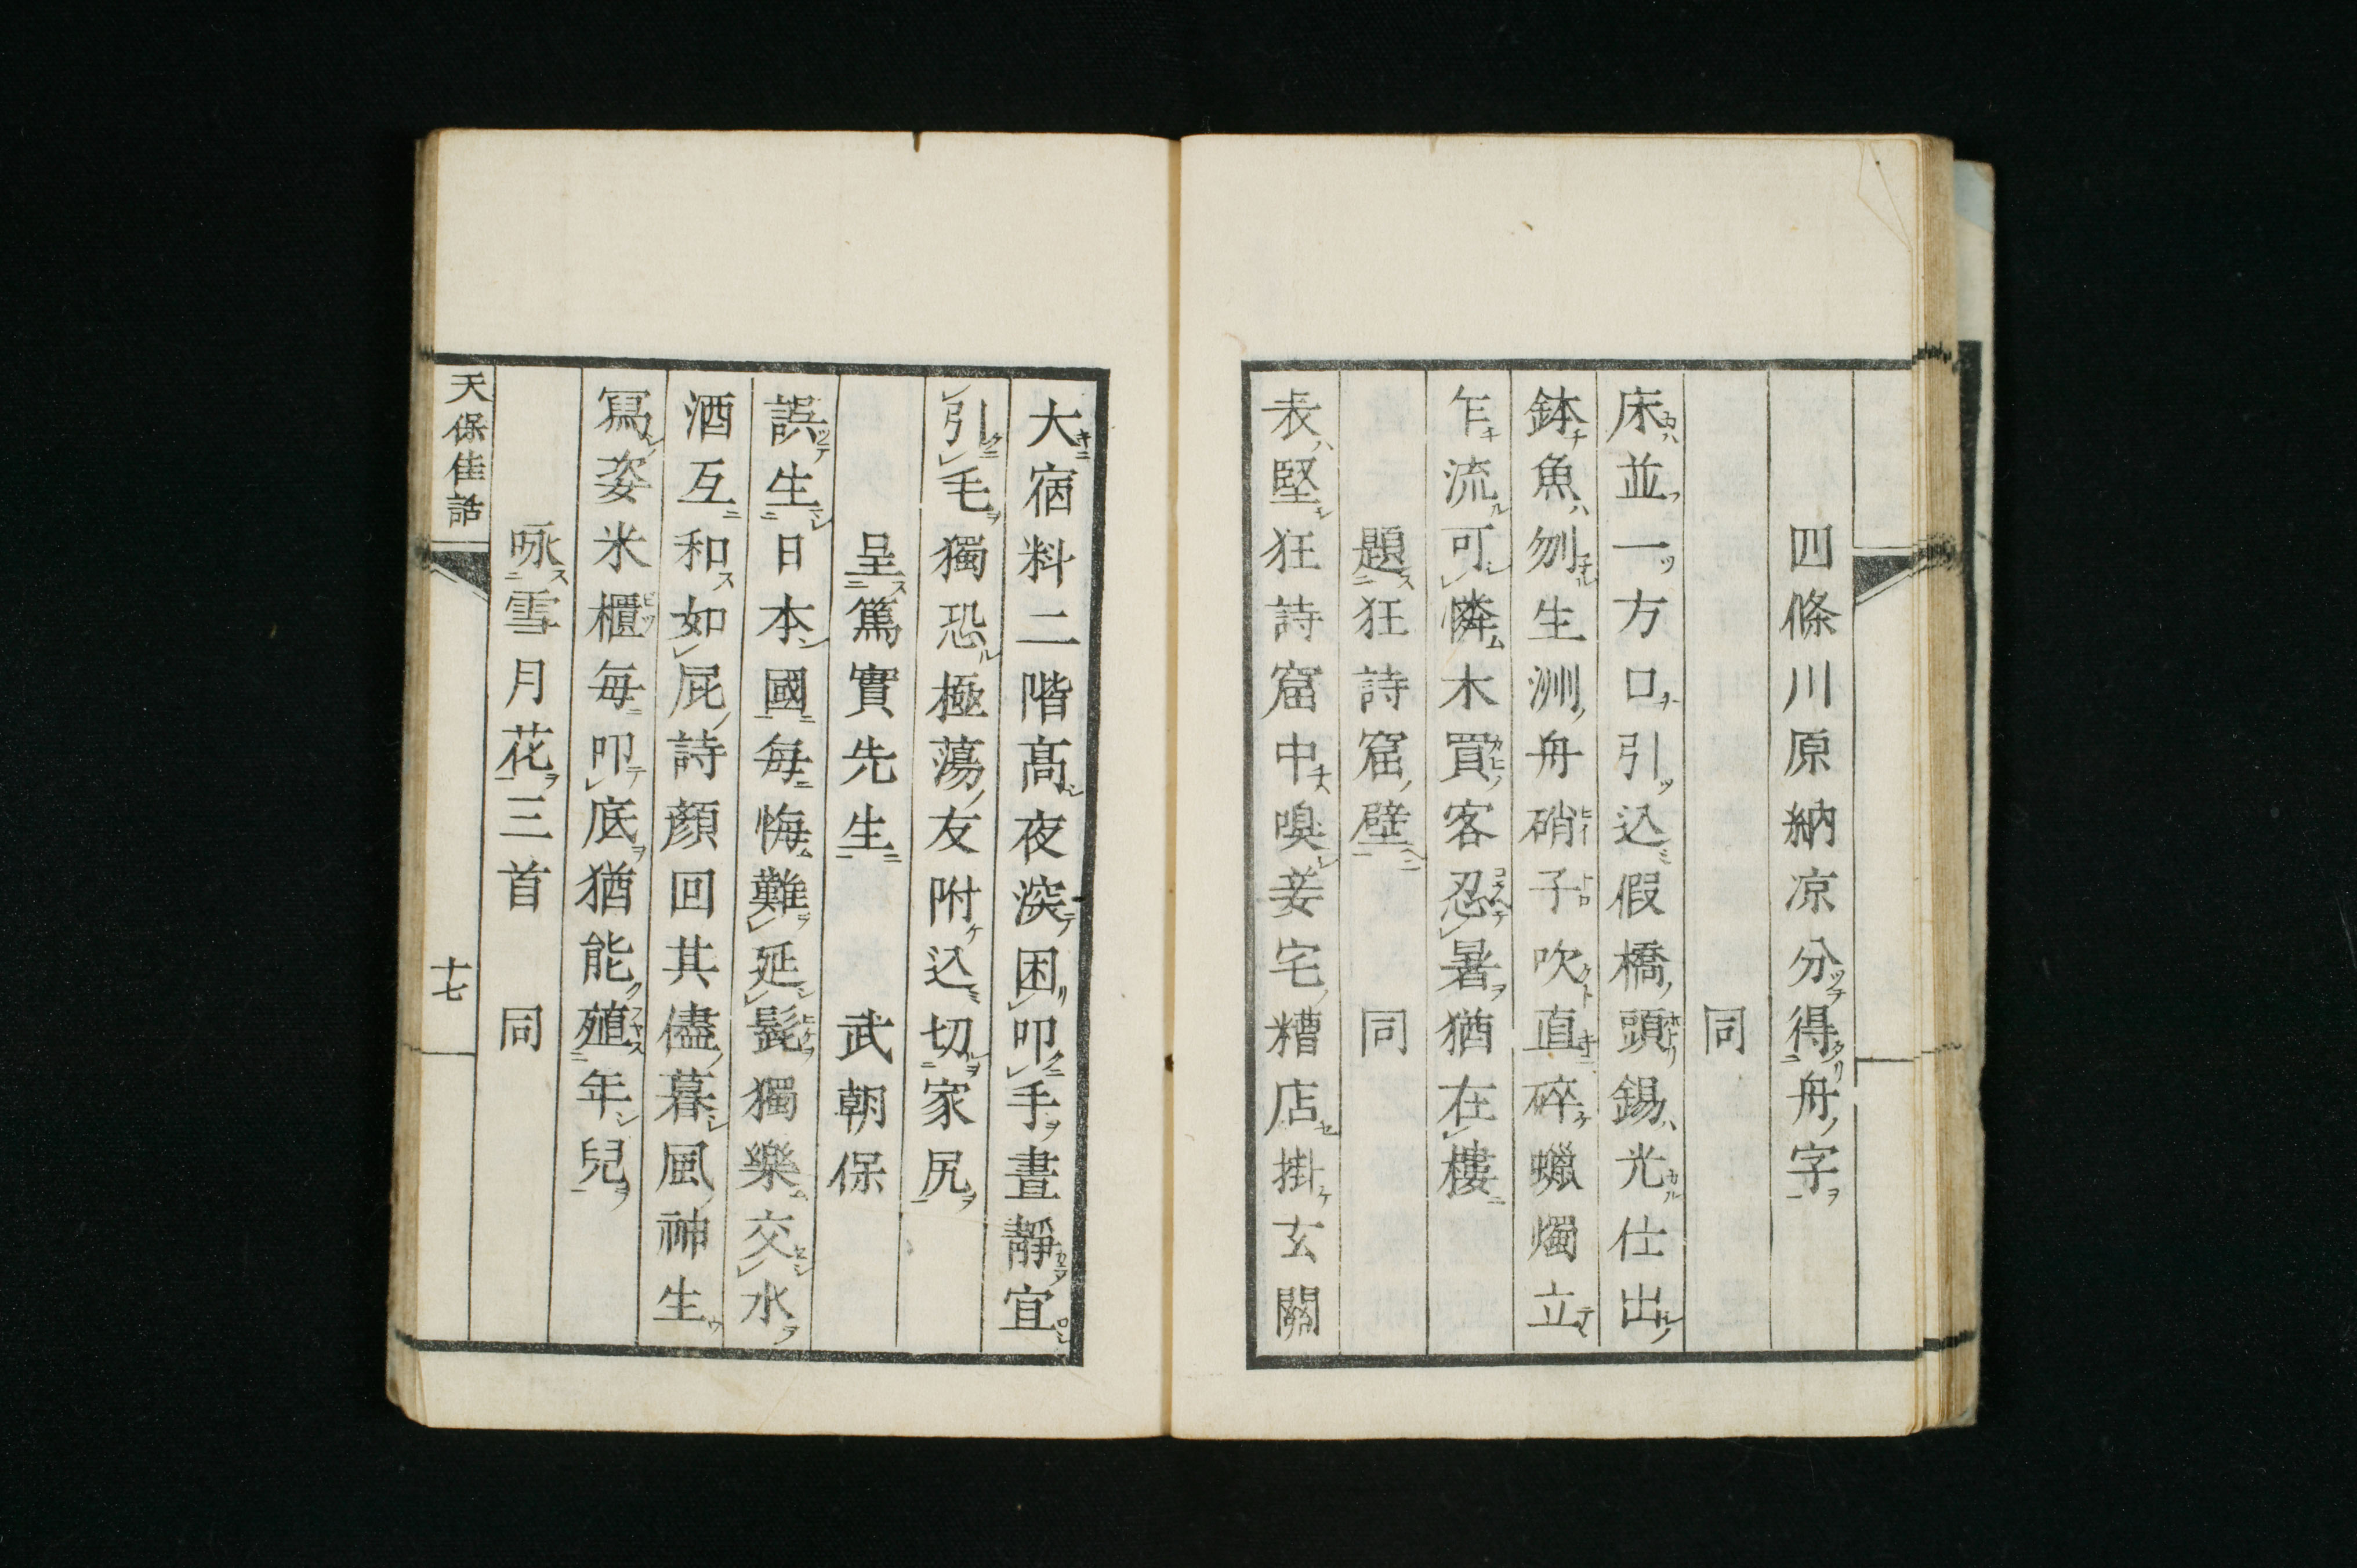 四條川原納凉分得舟字
同
床並一方口引込假橋頭錫光仕出
鉢魚刎生洲舟硝子吹直碎蠟燭立
乍流可憐木買客忍暑猶在樓
題狂詩窟壁　同
表堅狂詩窟中嗅妾宅糟店掛玄關
大宿料二階高夜深困叩手晝靜宜
引毛獨恐極蕩友附込切家尻
呈篤實先生　武朝保
誤生日本國毎悔難延髭獨樂交水
酒互和如屁詩顏回其儘暮風神生
寫姿米櫃毎叩底猶能殖年兒
咏雪月花三首　同
天保佳話
十七